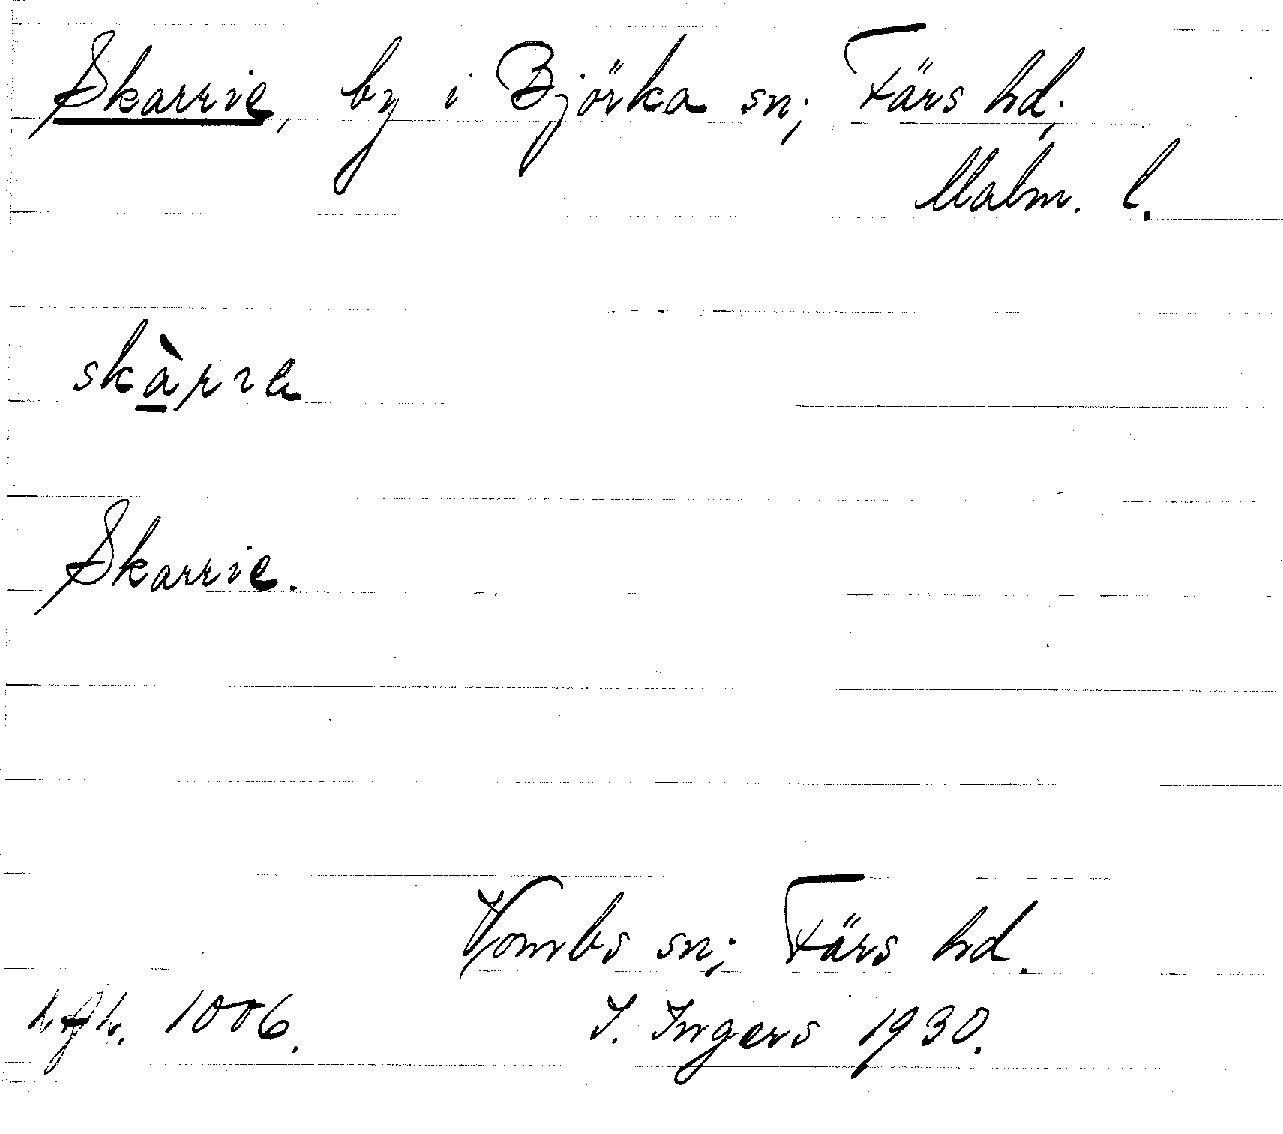 Skarrie, by i Björka sn; Färs hd;
Malm. l.
skàrre
Skarrie.
Vombs sn; Färs hd.
hfh. 1006. I. Ingers 1930.